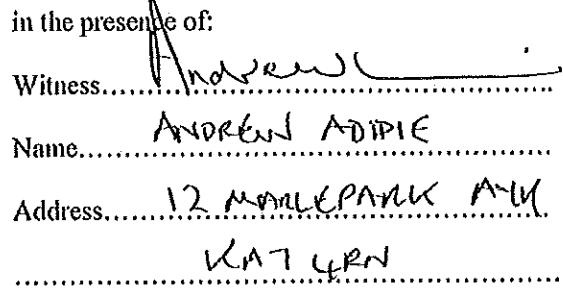 in the presence of:
Witness..... Andrew
Name..... ANDREW ADIPIE
Address..... 12 MARLEPARK AYR
KA7 4RN